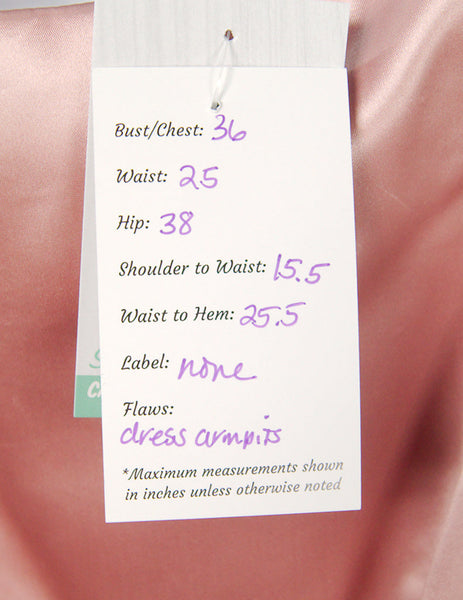 Bust/Chest: 36
Waist: 25
Hip: 38
Shoulder to Waist: 15.5
Waist to Hem: 25.5
Label: none
Flaws:
dress armpits
*Maximum measurements shown
in inches unless otherwise noted